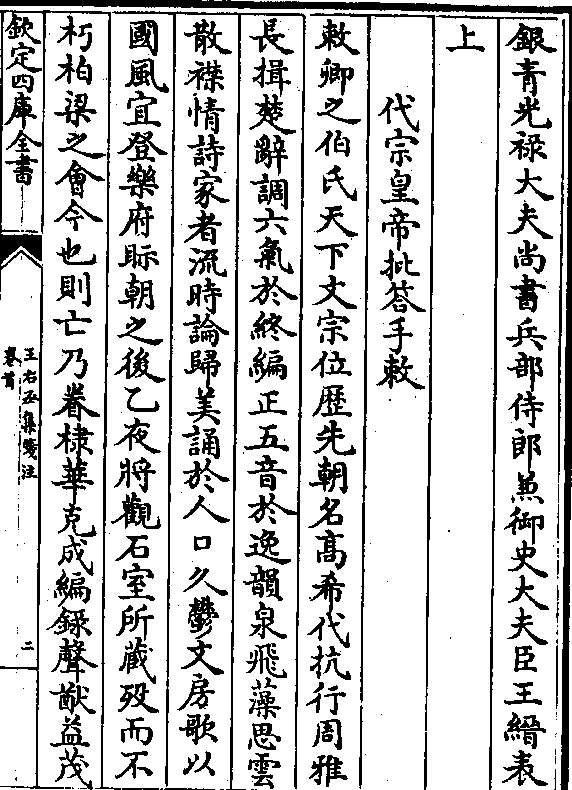 銀青光祿大夫尚書兵部侍郎兼御史大夫臣王縉表
上
代宗皇帝批答手敕
敕卿之伯氏天下文宗位歷先朝名高希代抗行周雅
長揖楚辭調六氣於終編正五音於逸韻泉飛藻思雲
散襟情詩家者流時論歸美誦於人口久鬱文房歌以
國風宜登樂府眎朝之後乙夜將觀石室所藏歿而不
朽柏梁之會今也則亡乃眷棣華克成編錄聲猷益茂
欽定四庫全書
王右丞集箋注
卷首
二